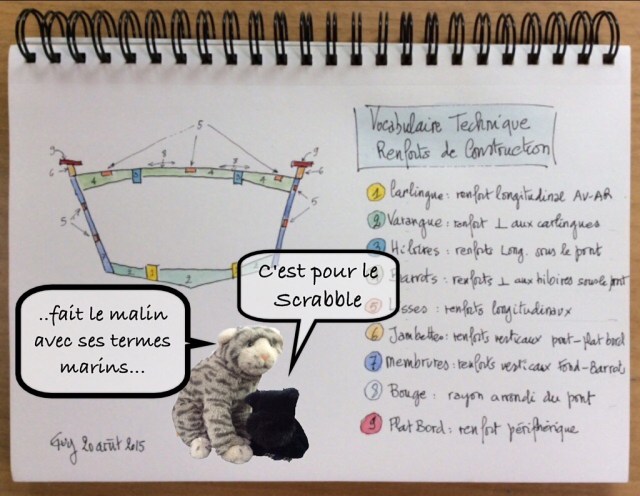 Vocabulaire Technique
Renforts de Construction
1 Carlingue : renfort longitudinal AV-AR
2 Varangue : renfort ⊥ aux carlingues
3 Hiloires : renforts Long. sous le pont
Barrots : renforts ⊥ aux hiloires sous le pont
5 Lisses : renforts longitudinaux
6 Jambettes : renforts verticaux pont-plat bord
7 Membrures : renforts verticaux Fond-Barrots
8 Bouge : rayon arrondi du pont
9 Plat Bord : renfort périphérique
5
9
6
4
3
8
5
8
3
4
9
6
5
7
5
2
1
2
C'est pour le
Scrabble
..fait le malin
avec ses termes
marins...
Guy 20 août 2015